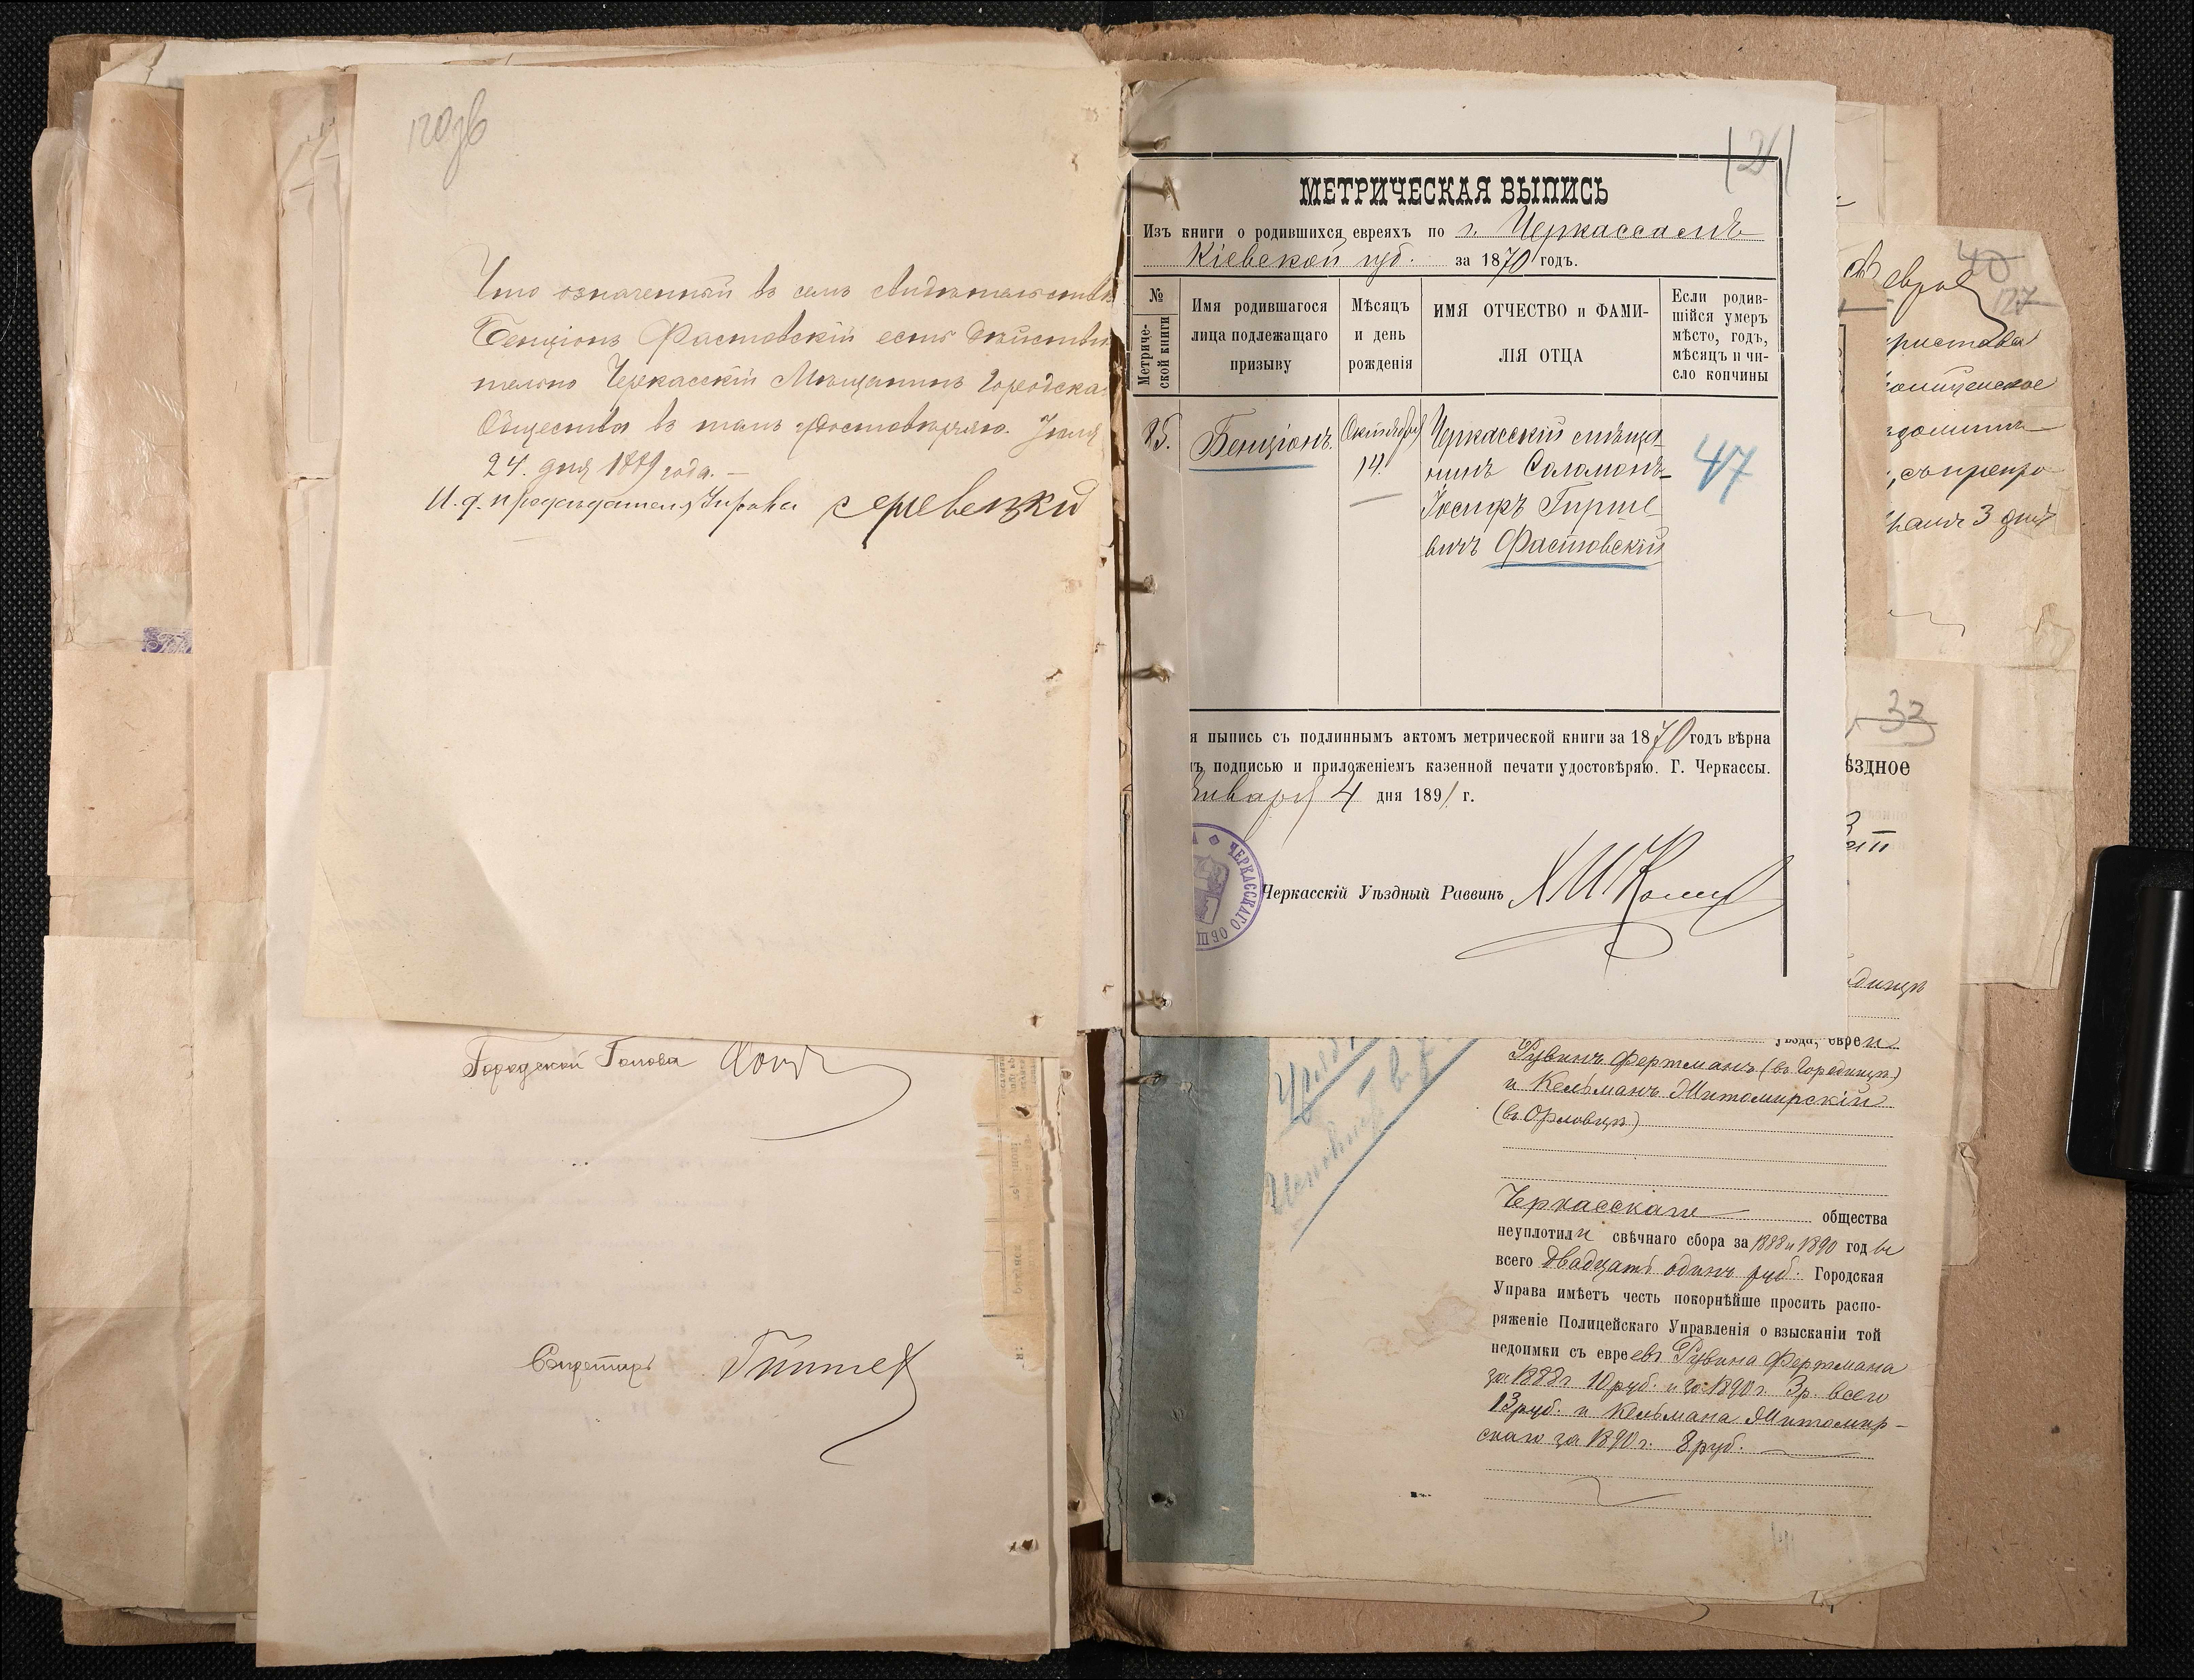 120 об
Что означенный въ семъ свидѣтельствѣ
Бенціонъ Фастовскій есть дѣйстви
тельно Черкасскій Мѣщанинъ Городска
Общества въ томъ удостовѣряю. Іюля
24. дня 1889 года. —
И. д. предсѣдателя Управы
Городской Голова
Секретарь
121
МЕТРИЧЕСКАЯ ВЫПИСЬ
Изъ книги о родившихся евреяхъ по г. Черкассамъ
Кіевской губ. за 1870 годъ.
№ Метриче-ской книги
Имя родившагося лица подлежащаго призыву
Мѣсяцъ и день рожденія
ИМЯ ОТЧЕСТВО и ФАМИ-ЛІЯ ОТЦА
Если родив-шійся умеръ мѣсто, годъ, мѣсяцъ и чи-сло кончины
25. Бенціонъ. Октября Черкасскій мѣща
14. нинъ Соломонъ-
Іосифъ Гирше
вичъ Фастовскій
47
я выпись съ подлиннымъ актомъ метрической книги за 1870 годъ вѣрна
ъ подписью и приложеніемъ казенной печати удостовѣряю. Г. Черкассы.
Января 4 дня 1891 г.
ЧЕРКАССКАГО ОБЩ
Черкасскій Уѣздный Раввинъ
уѣзда, евреи
Рувинъ Фертманъ (въ Городищѣ)
и Кельманъ Житомирскій
(въ Орловцѣ)
Черкасскаго общества
неуплотили свѣчнаго сбора за 1888 и 1890 годы
всего двадцать одинъ руб. Городская
Управа имѣетъ честь покорнѣйше просить распо-
ряженіе Полицейскаго Управленія о взысканіи той
недоимки съ евреевъ Рувина Фертмана
за 1888 г 10 руб. и за 1890 г. 3 р. всего
13 руб. и Кельмана Житомир-
скаго за 1890 г. 8 руб.
40
127
пристава
3 дня
33
ѣздное